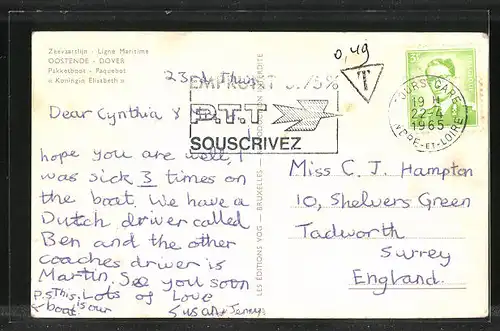 Zeevaartlijn - Ligne Maritime
OOSTENDE - DOVER
Pakketboot - Paquebot
« Koningin Elisabeth »
23rd Thur
0,49
T
EMPRUNT 5.75%
P.T.T
SOUSCRIVEZ
TOURS-GARE
19 H
22-4
1965
INDRE-ET-LOIRE
Dear Cynthia &
hope you are well, I
was sick 3 times on
the boat. We have a
Dutch driver called
Ben and the other
coaches driver is
Martin. See you soon
Lots of Love
Susan & Jenny
P.S. This
is our
boat.
LES ÉDITIONS VOG - BRUXELLES - REPRODUCTION INTERDITE
Miss C. J. Hampton
10, Shelvers Green
Tadworth
Surrey
England.